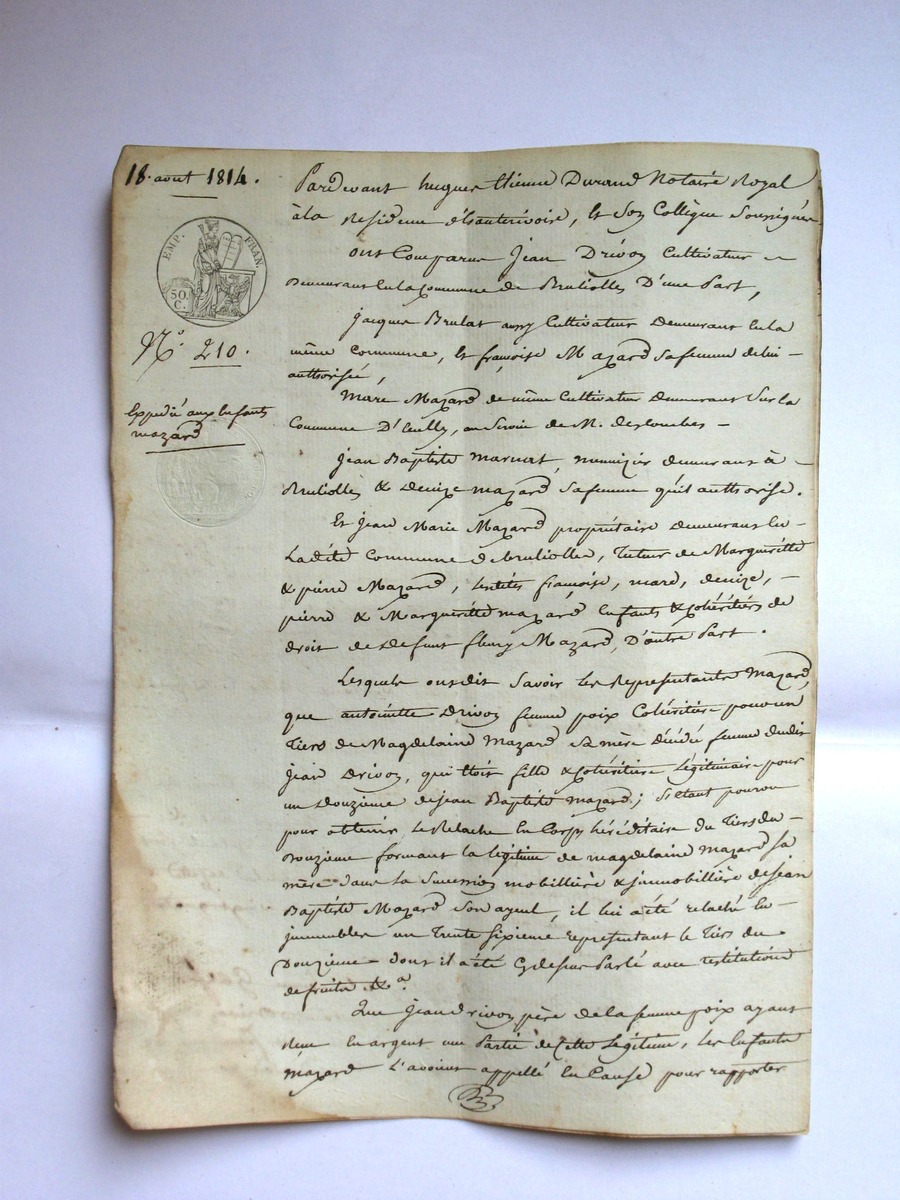 18. aout 1814.
EMP. FRAN.
50. C.
N.o 210.
Expedié aux Enfants
mazard
Pardevant hugues Etienne Durand Notaire Royal
à la Residence d'hauterivoire, Et Son Collègue Soussignés
ont Comparu Jean Drivon Cultivateur
Demeurant En la Commune de Brulliolles D'une Part,
Jacques Brulas aussy Cultivateur Demeurant En la
même Commune, Et françoise Mazard Sa femme de lui
authorisée,
Marc Mazard de même Cultivateur Demeurant Sur la
Commune D'Ecully, au Servic de M. deslouches
Jean Baptiste marnas, menuizier demeurant à
Brulliolles & Denize mazard Sa femme qu'il authorise.
Et Jean Marie Mazard propriétaire Demeurant En
Ladite Commune de brullolles, Tuteur de Margueritte
& pierre Mazard, Lesdits françoise, marc, denize,
pierre & Margueritte mazard Enfants & Cohéritiers de
droit de Defunt fleury Mazard, D'autre Part.
Lesquels ont dit Savoir Les Représentants Mazard,
que antoinette Drivon femme poix Cohéritière pour un
Tiers de Magdelaine Mazard Sa mère Décédée femme dudit
Jean Drivon, qui Etoit fille & Cohéritière Légitimaire pour
un Douzieme de jean Baptiste Mazard; S'étant pourvu
pour obtenir Le Relache En Corps héréditaire du Tiers du
Douzieme formant la légitime de magdelaine mazard Sa
mère dans la Succession mobillière & immobillière de Jean
Baptiste Mazard Son ayeul, il lui a été relaché En
immeubles un Trente Sixieme représentant le Tiers du
Douzieme dont il a été Cy dessus Parlé avec restitution
de fruits &.a
Que Jean drivon père de la femme poix ayant
Reçu En argent une Partie de Cette Légitime, Les Enfants
Mazard L'avoient appellé En Cause pour rapporter